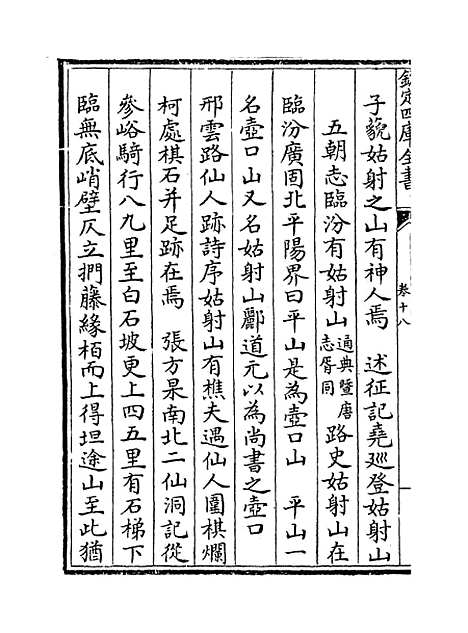 欽定四庫全書
卷十八
子藐姑射之山有神人焉　述征記堯廵登姑射山
五朝志臨汾有姑射山通典暨唐志胥同路史姑射山在
臨汾廣固北平陽界曰平山是為壺口山　平山一
名壺口山又名姑射山酈道元以為尚書之壺口
邢雲路仙人跡詩序姑射山有樵夫遇仙人圍棋爛
柯處棋石并足跡在焉　張方杲南北二仙洞記從
參峪騎行八九里至白石坡更上四五里有石梯下
臨無底峭壁仄立捫藤緣栢而上得坦途山至此猶